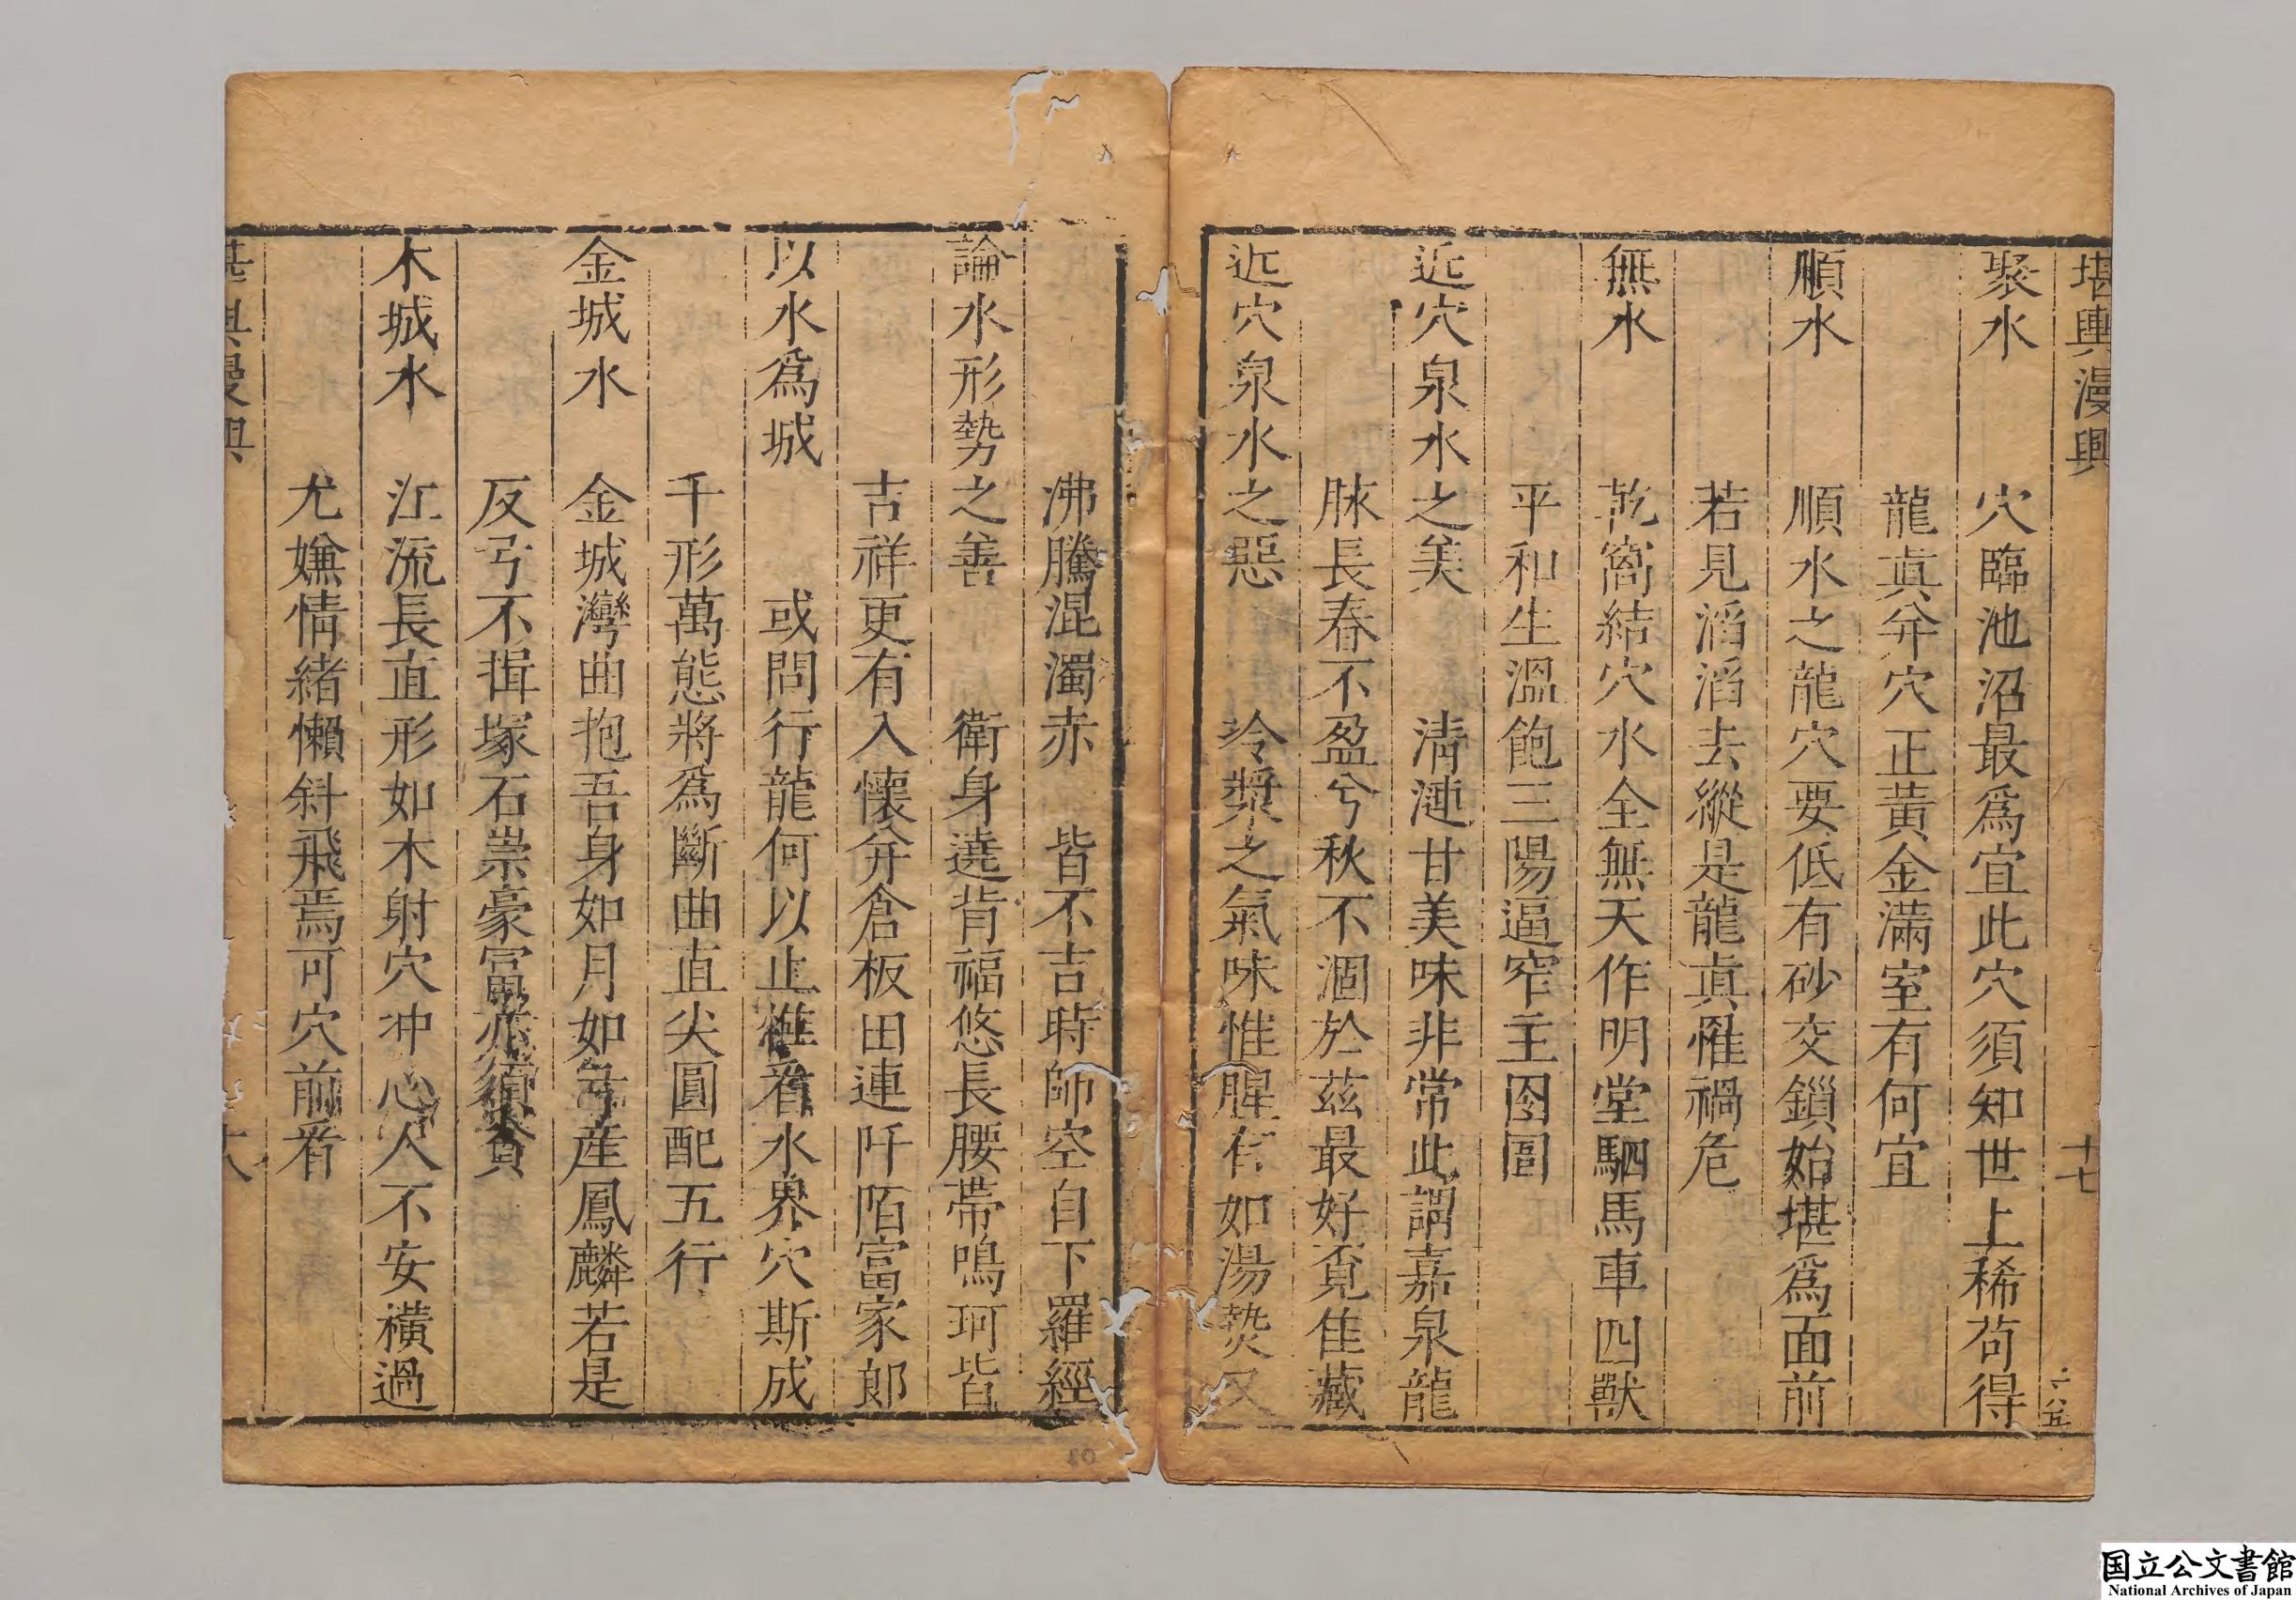 堪輿漫興 十七 六八五
聚水 穴臨池沼最爲宜此穴須知世上稀苟得
龍眞并穴正黃金滿室有何宜
順水 順水之龍穴要低有砂交鎖始堪爲面前
若見滔滔去縱是龍眞惟禍危
無水 乾窩結穴水全無天作明堂駟馬車四獸
平和生溫飽三陽逼窄主囹圄
近穴泉水之美 清漣甘美味非常此謂嘉泉龍
脉長春不盈兮秋不涸於茲最好覔佳藏
近穴泉水之惡 泠漿之氣味惟腥有如湯𤍠又
沸騰混濁赤 皆不吉時師空自下羅經
論水形勢之善 衛身遶背福悠長腰帶鳴珂皆
吉祥更有入懷并倉板田連阡陌富家郎
以水爲城 或問行龍何以止惟看水界穴斯成
千形萬態將爲斷曲直尖圓配五行
金城水 金城灣曲抱吾身如月如弓產鳳麟若是
反弓不揖塚石崇豪富亦須貧
木城水 江流長直形如木射穴冲心人不安橫過
尤嫌情緒懶斜飛焉可穴前看
堪輿漫興 十八
國立公文書館
National Archives of Japan